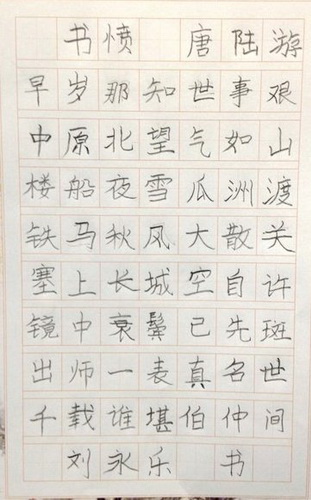 书愤 唐 陆游
早岁那知世事艰
中原北望气如山
楼船夜雪瓜洲渡
铁马秋风大散关
塞上长城空自许
镜中衰鬓已先斑
出师一表真名世
千载谁堪伯仲间
刘永乐 书